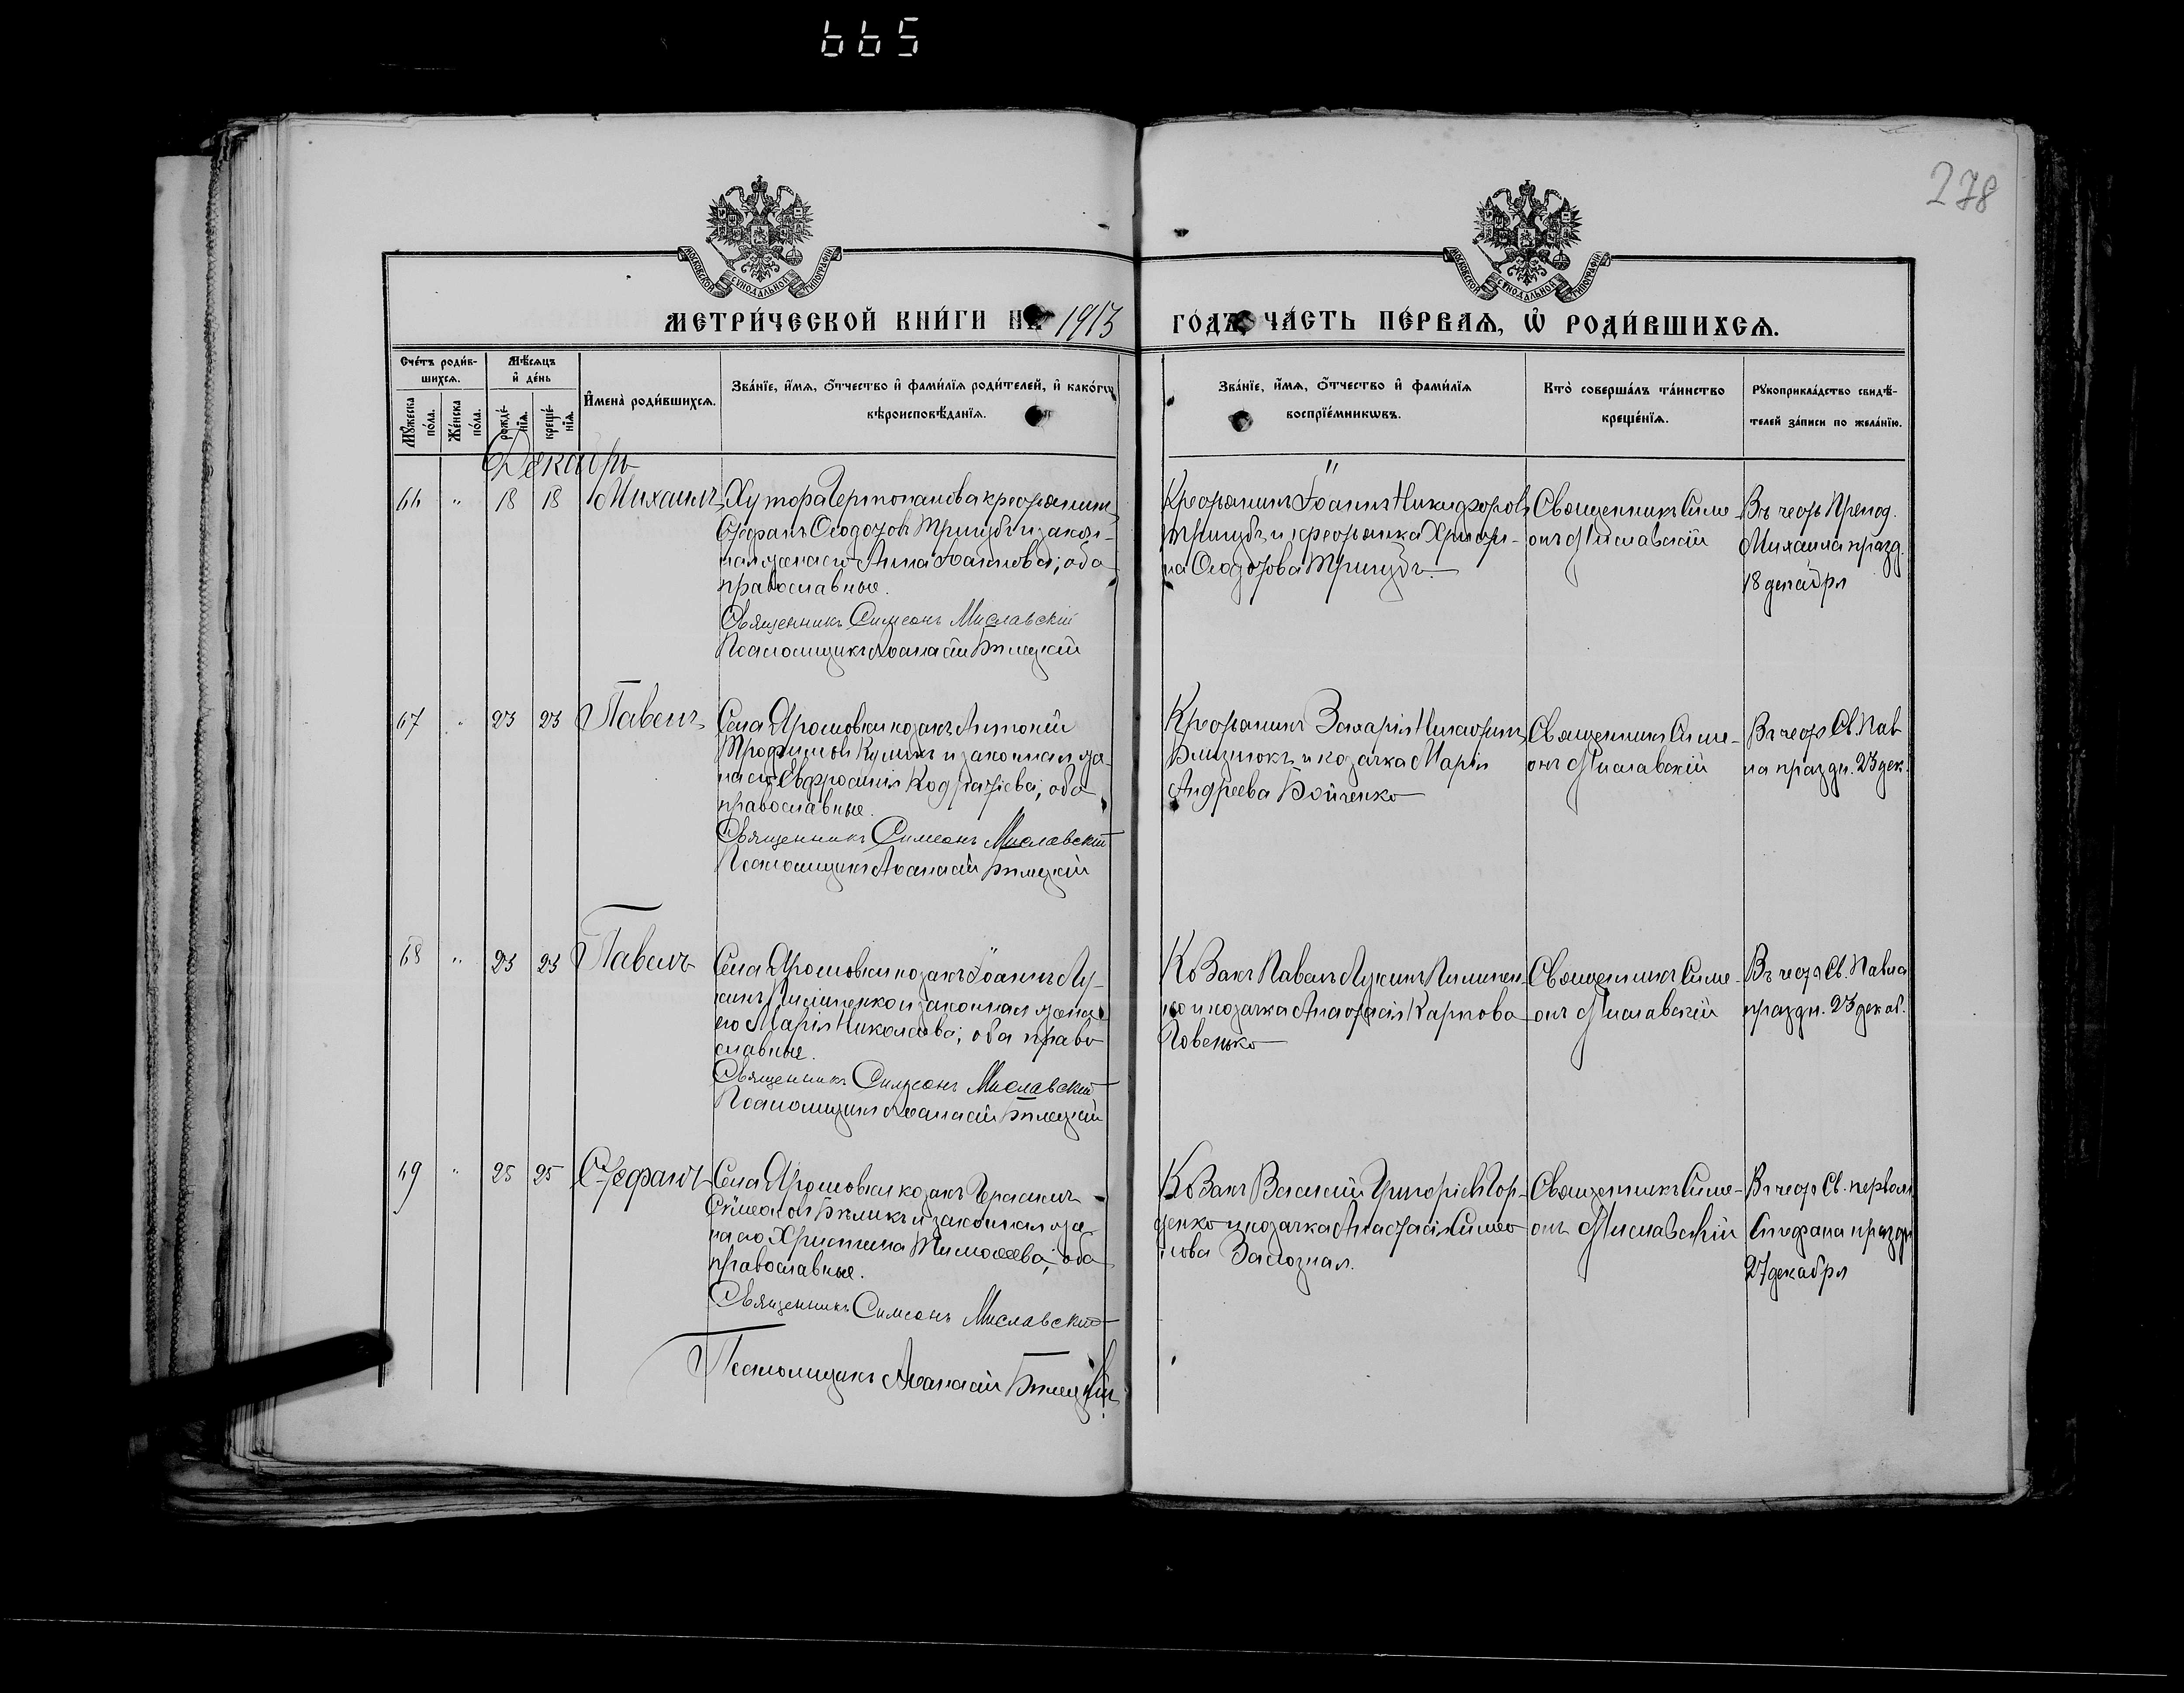 665
278
МОСКОВСКОЙ СУНОДАЛЬНОЙ ТИПОГРАФІИ
МОСКОВСКОЙ СУНОДАЛЬНОЙ ТИПОГРАФІИ
МЕТРИ́ЧЕСКОЙ КНИ́ГИ НА 1913 ГО́ДЪ, ЧА́СТЬ ПЕ́РВАѦ, Ѡ҆ РОДИ́ВШИХСѦ.
Сче́тъ роди́в-
шихсѧ.
Мѣ́сѧцъ
и҆ де́нь
Мꙋ́жеска
по́ла.
Же́нска
по́ла.
рожде́-
нїѧ.
креще́-
нїѧ.
И҆мена̀ роди́вшихсѧ.
Зва́нїе, и҆́мѧ, ѻ҆́тчество и҆ фами́лїѧ роди́телей, и҆ како́гѡ
вѣроисповѣ́данїѧ.
Зва́нїе, и҆́мѧ, ѻ҆́тчество и҆ фами́лїѧ
воспрїе́мникѡвъ.
Кто̀ соверша́лъ та́инство
креще́нїѧ.
Рꙋкоприкла́дство свидѣ́-
телей за́писи по жела́нїю.
Декабрь
66 " 18 18 Михаилъ
Хутора крестьянинъ
Стефанъ Ѳеодотовъ Тригубъ и закон-
ная жена его Анна Іоаннова; оба
православные.
Священникъ Симеонъ Миславскій
Псаломщикъ Аѳанасій Бѣлецкій
Крестьянинъ Іоаннъ Никифоровъ
Тригубъ и крестьянка Христи-
на Ѳеодотова Тригубъ.
Священникъ Симе-
онъ Миславскій
Въ честь Препод.
Михаила празд.
18 декабря
67 " 23 23 Павелъ
Села Ярошовки козакъ Антоній
Трофимовъ и законная же-
на его Евфросинія Кодратіева; оба
православные.
Священникъ Симеонъ Миславскій
Псаломщикъ Аѳанасій Бѣлецкій
Крестьянинъ Захарія
Близнюкъ и козачка Марія
Андреева Бойченко
Священникъ Симе-
онъ Миславскій
Въ честь Св. Пав-
ла праздн. 23 дек.
68 " 23 23 Павелъ
Села Ярошовки козакъ Іоаннъ Лу-
кинъ и законная жена
его Марія Николаева; оба право
славные.
Священникъ Симеонъ Миславскій
Псаломщикъ Аѳанасій Бѣлецкій
Козакъ Павелъ Лукинъ
и козачка Анастасія Карпова
Священникъ Симе-
онъ Миславскій
Въ честь Св. Павла
праздн. 23 декаб.
69 " 25 25 Стефанъ
Села Ярошовки козакъ Герасимъ
Симеоновъ Бѣликъ и законная же-
на его Христина Тимоѳеева; оба
православные.
Священникъ Симеонъ Миславскій
Псаломщикъ Аѳанасій Бѣлецкій
Козакъ Василій Григоріевъ Гор-
денко и козачка Анастасія Симео
нова
Священникъ Симе-
онъ Миславскій
Въ честь Св. первом.
Стефана праздн
27 декабря